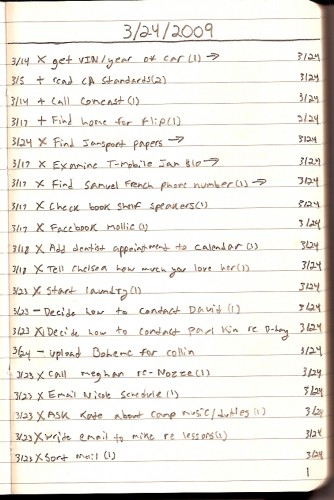 3/24/2009
3/14 X get VIN/year of car (1) → 3/24
3/5 + read CA Standards(2) 3/24
3/14 + Call Comcast (1) 3/24
3/17 + Find home for Flip(1) 3/24
3/24 X Find Jansport papers → 3/24
3/17 X Examine T-mobile Jan Bill → 3/24
3/17 X Find Samuel French phone number(1) → 3/24
3/17 X Check book shelf speakers(1) 3/24
3/17 X Facebook Mollie (1) 3/24
3/18 X Add dentist appointment to calendar (1) 3/24
3/18 X Tell Chelsea how much you love her(1) 3/24
3/23 X Start laundry(1) 3/24
3/23 - Decide how to contact David (1) 3/24
3/23 X Decide how to contact Paul Kin re D-Day 3/24
3/24 - Upload Boheme for Collin 3/24
3/23 X Call Meghan re-Nozze(1) 3/24
3/23 X Email Nicole Schedule (1) 3/24
3/23 X Ask Kate about camp music/duties (1) 3/24
3/23 X Write email to mike re lessons(1) 3/24
3/23 X Sort Mail (1) 3/24
1